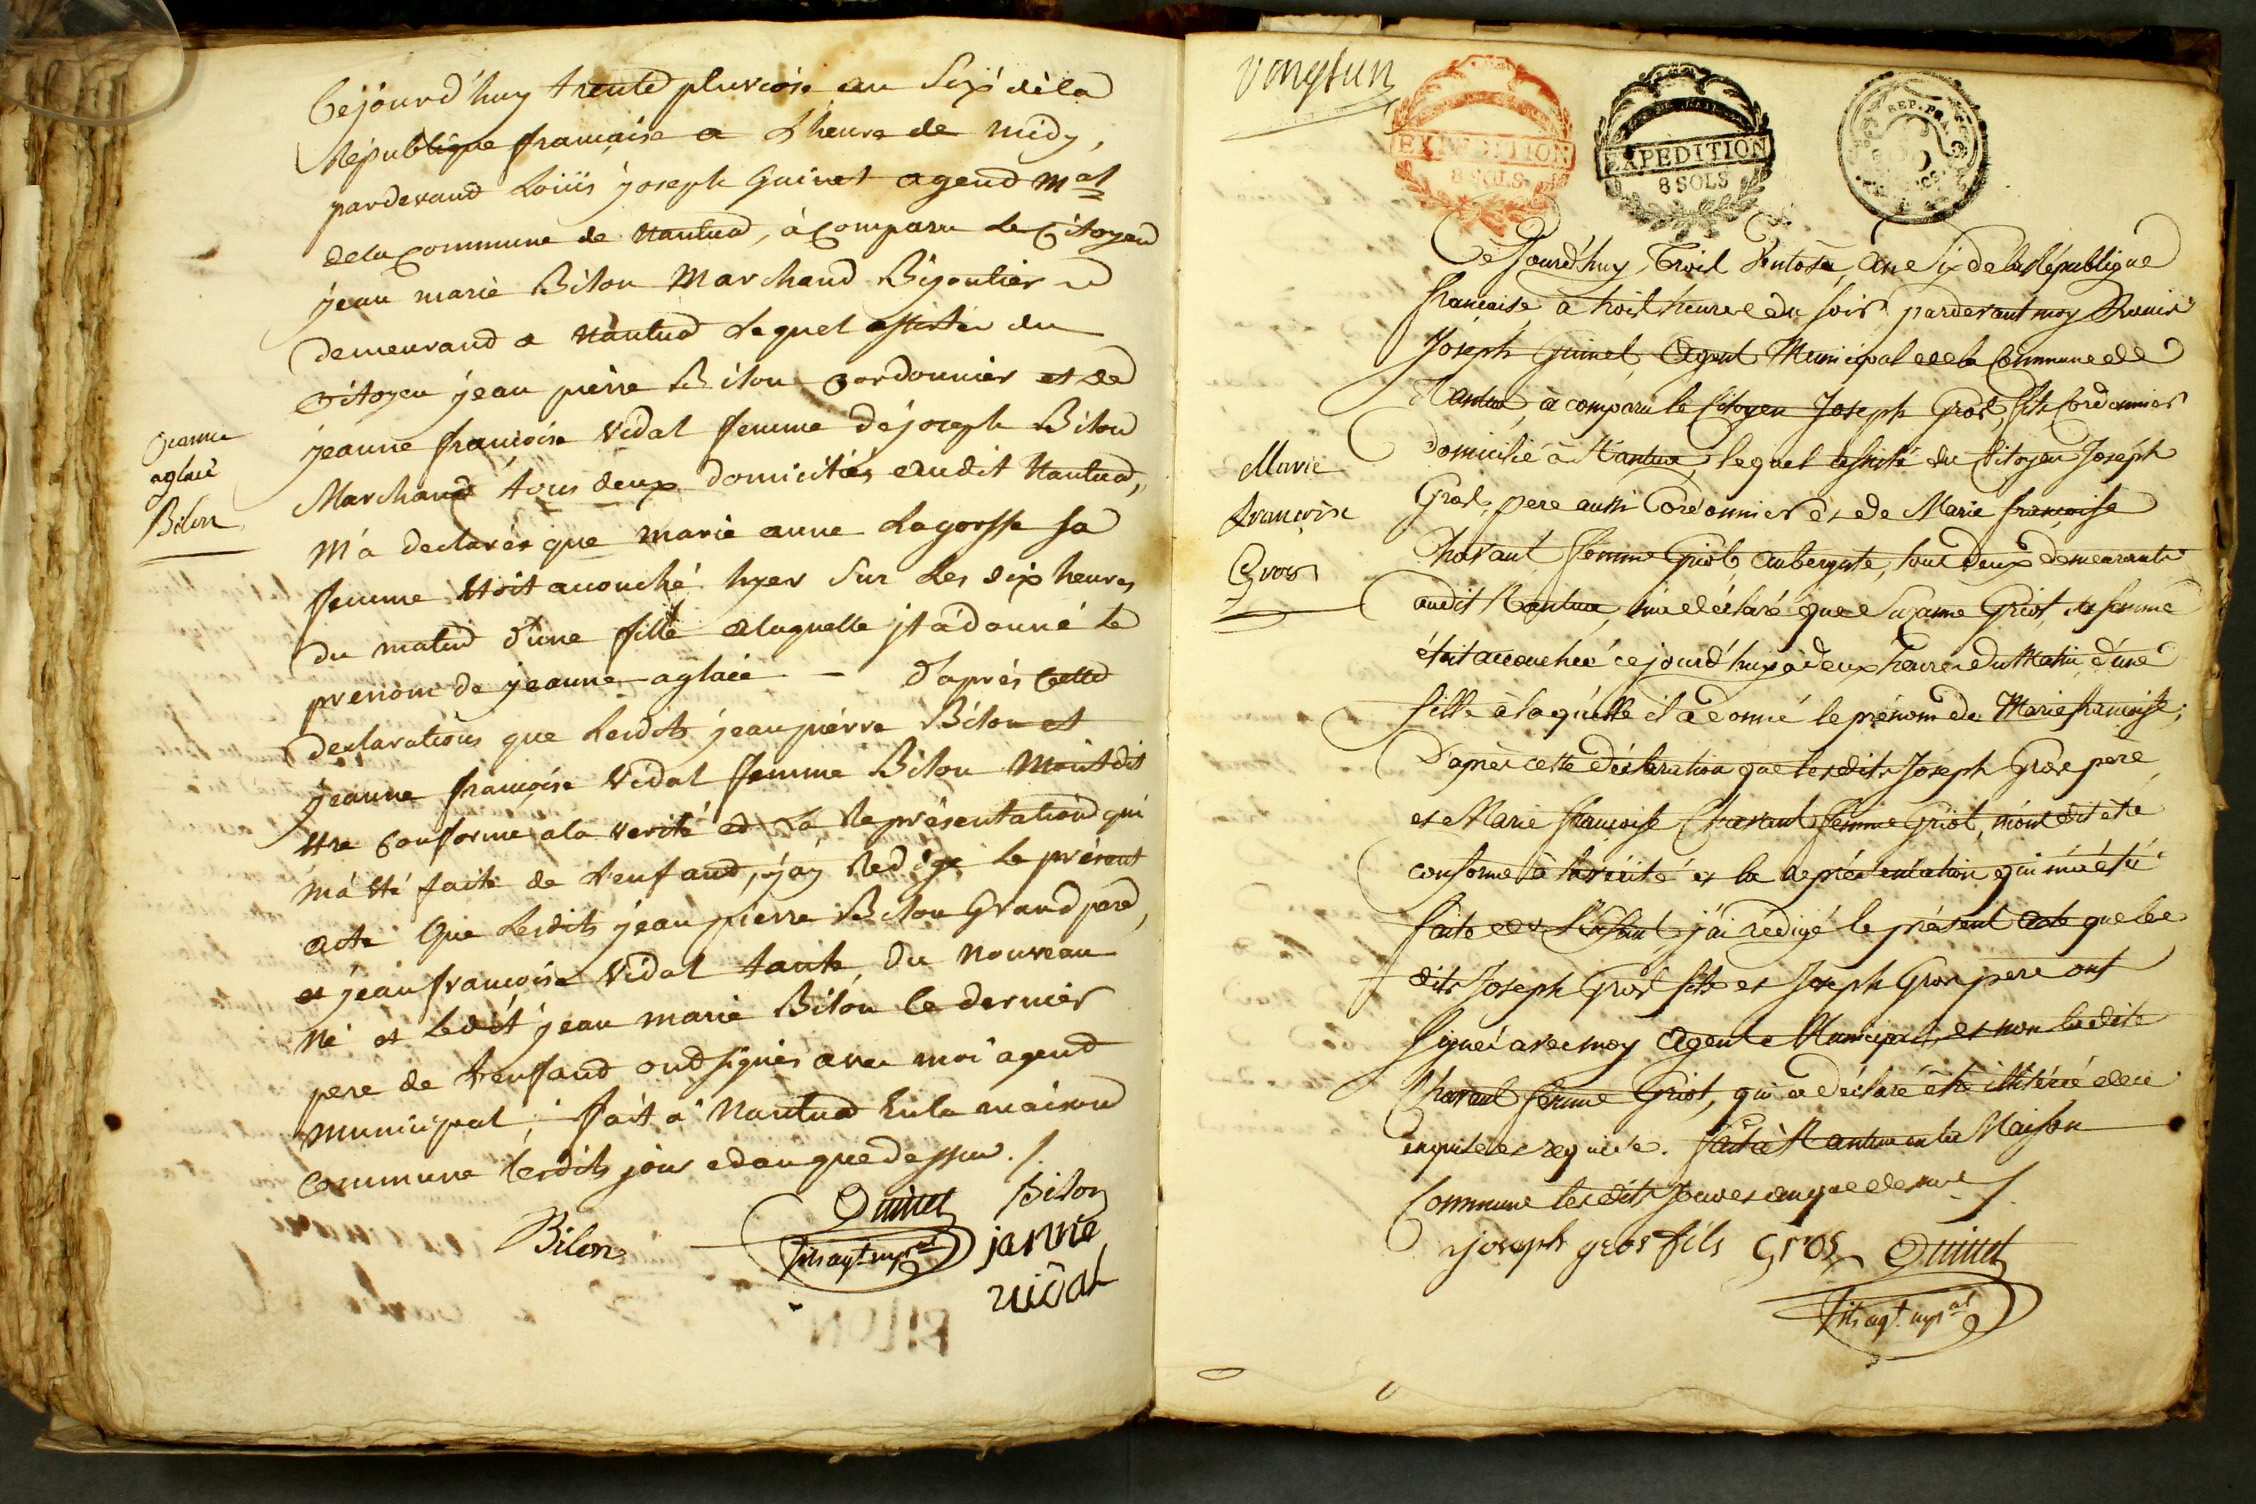 Cejourd'huy trente pluviose an Six dela
République française a L'heure de midy,
pardevand Loüis joseph Guinet agend Mal
dela commune de Nantua, à Comparu le Citoyen
jean marie Bilon Marchand Bijoutier
demeurand a Nantua Lequel assisté du
Citoyen jean pierre Bilon Cordonnier et de
jeanne françoise Vidal femme de joseph Bilon
Marchand tous deux domiciliés audit Nantua,
M'a declarér que marie anne Lagorsse sa
femme étoit accouché hyer Sur les dix heures
du matin d'une fille alaquelle jl a donné le
prenom de jeanne-aglaié - d'aprés Cette
declarations que Lesdits jean pierre Bilon et
jeanne françoise Vidal femme Bilon M'ont dit
être Conforme ala verité et La Représentation qui
m'a été faite de l'enfand, j'ay Redigé le présent
acte Que Lesdits jean pierre Bilon Grand pere,
et jean françoise Vidal tante, du nouveau
né et Ledit jean marie Bilon Ce dernier
pere de l'enfand ond signés avec moi agend
municipal, fait a Nantua En la maison
Commune Lesdits jour et an que dessus ./.
jeanne
aglaié
Bilon
Bilon
Guinet
fils agt. mpal
bilon
janne
vidal
vingt un
EXPEDITION
8 SOLS
EXPEDITION
8 SOLS
REP. FRA.
Ce Jourd'huy Trois Ventose, an Six de la République
française, à trois heures du soir, pardevant moy Louis
Joseph Guinet, Agent Municipal de la Commune de
Nantua, à comparu le Citoyen Joseph Gros, fils Cordonnier
domicilié à Nantua, lequel assisté du Citoyen Joseph
Gros, pere aussi Cordonnier et de Marie françoise
Chavant femme Griot aubergiste, tous deux demeurants
audit Nantua, m'a déclaré que Suzanne Griot, sa femme
étoit accouchée cejourd'huy à deux heures du Matin, d'une
fille à laquelle il a donné le prénom de Marie françoise;
D'après cette déclaration que lesdits Joseph Gros pere
et Marie françoise Chavant femme Griot, m'ont dit être
conforme à la vérité et la représentation qui m'a été
faite de l'Enfant, j'ai rédigé le présent acte que les
dits Joseph Gros fils et Joseph Gros pere ont
signé avec moy Agent Municipal, et non ladite
Chavant femme Griot, qui a déclaré être illiterée de ce
enquise et requise. fait à Nantua en la Maison
Commune lesdits Jour et an que dessus ./.
Marie
françoise
Gros
joseph gros fils
Gros
Guinet
fils agt. mpal